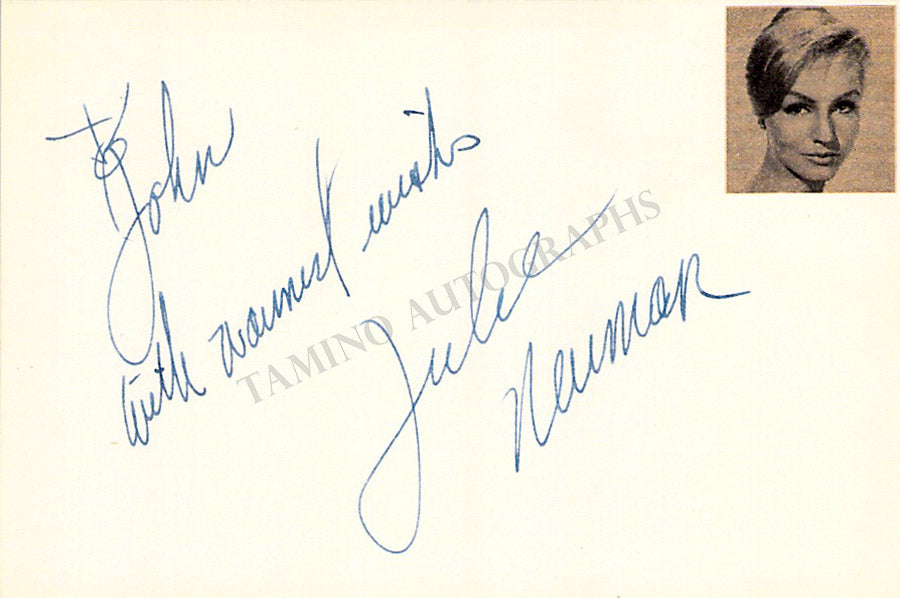 To John
with warmest wishes
Julie
Newmar
TAMINO AUTOGRAPHS